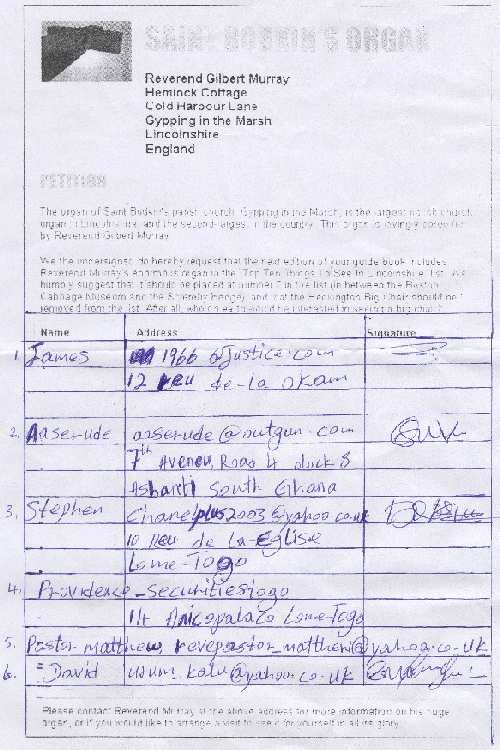 Reverend Gilbert Murray
Hemlock Cottage
Cold Harbour Lane
Gypping in the Marsh
Lincolnshire
England
PETITION
The organ of Saint parish church, Gypping in the Marsh, is the largest parish church
organ in Lincolnshire and the second-largest in the country. This organ is lovingly
by Reverend Gilbert Murray
We the undersigned do hereby request that the next edition of your guide book includes
Reverend Murray's enormous organ in the 'Top Ten Things To See In Lincolnshire' list. We
humbly suggest that it should be placed at number 7 in the list (in between the
Cabbage Museum and the Henge), and that the Heckington Big Chair should be
removed from the list. After all, who be interested in seeing a big chair
Name Address Signature
1. James 1966 @Justice.com
12 de-La
2. Aaserude aaserude@outgun.com
7th
Ashanti South Ghana
3. Stephen Chanelplus2003@yahoo.co.uk
10 de La-Eglise
Lome-Togo
4. Providence-Securities Togo
Lome-Togo
5. Pastor-matthew, revepastor_matthew@yahoo.co.uk
6. "David kalu@yahoo.co.uk
Please contact Reverend Murray at the above address for more information on his huge
organ, or if you would like to arrange a visit to see it for yourself in all its glory